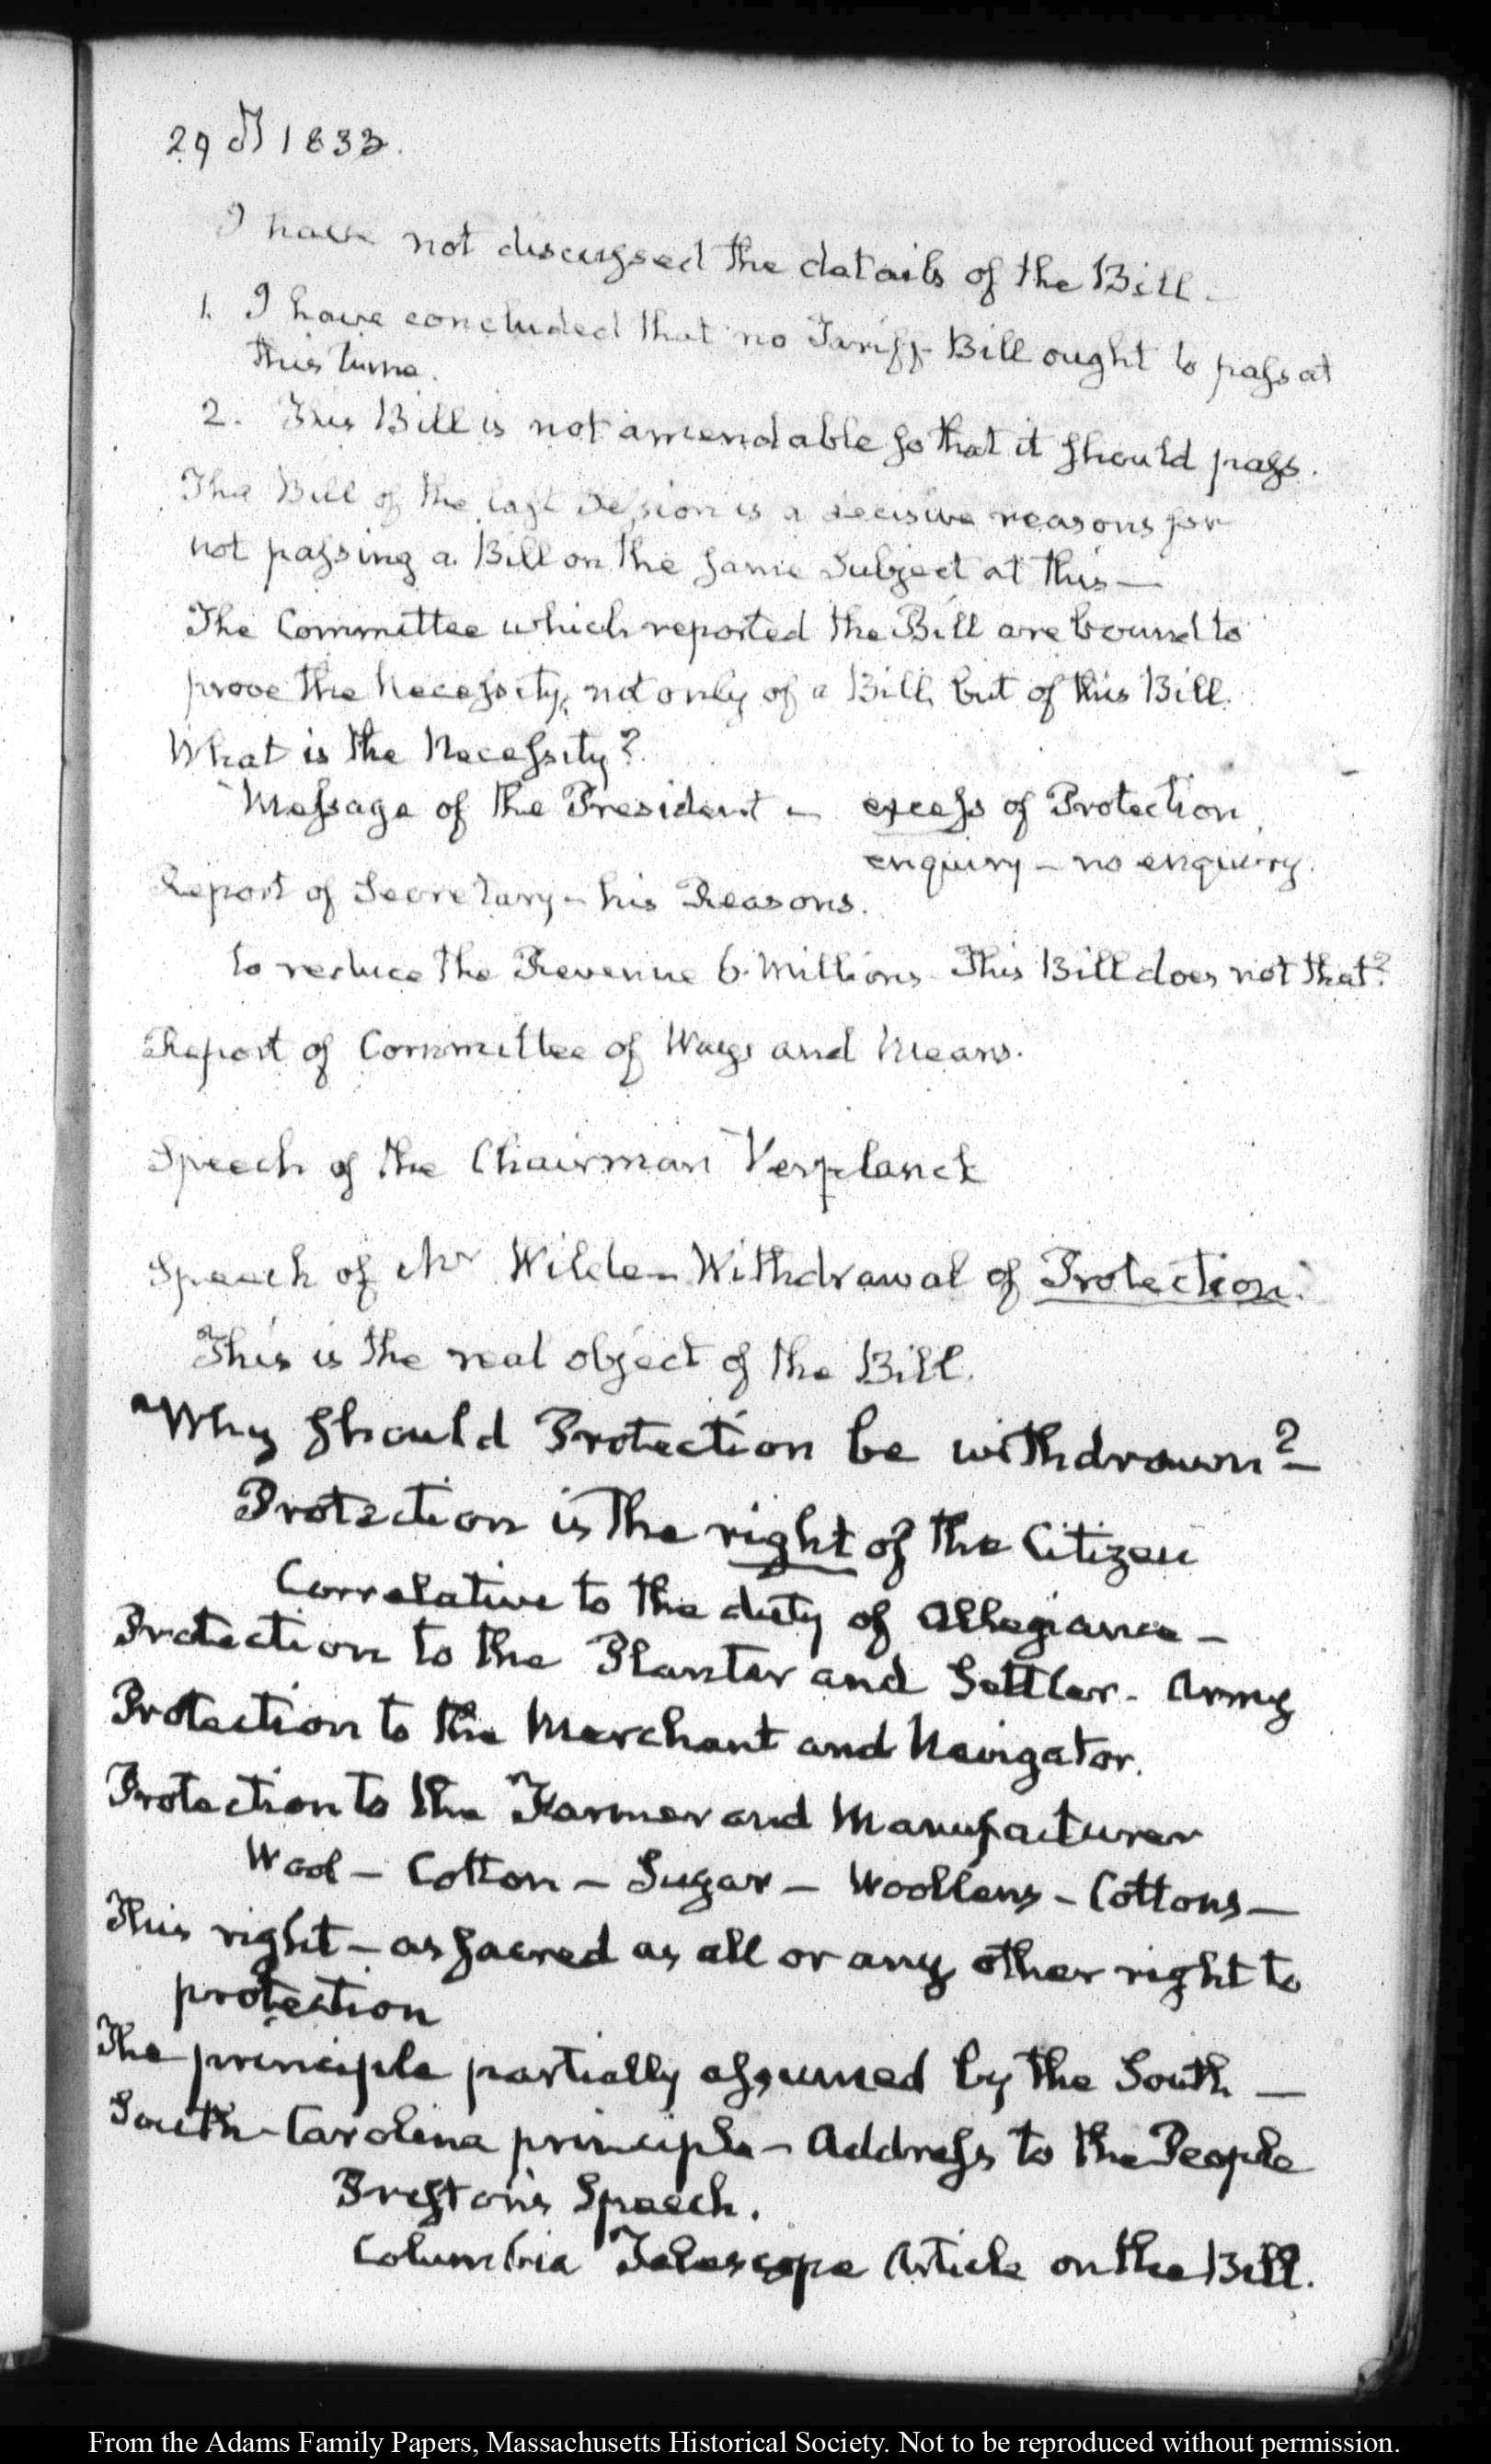 29 1833.
I have not discussed the details of the Bill –
1. I have concluded that no Tariff Bill ought to pass at
this time.
2. This Bill is not amendable so that it should pass.
The Bill of the last Session is a decisive reasons for
not passing a Bill on the same Subject at this —
The Committee which reported the Bill are bound to
prove the Necessity, not only of a Bill, but of this Bill.
What is the Necessity?
Message of the President – excess of Protection
enquiry – no enquiry.
Report of Secretary – his Reasons.
to reduce the Revenue 6. Millions – This Bill does not that?
Report of Committee of Ways and Means.
Speech of the Chairman Verplanck
Speech of Mr Wilde – Withdrawal of Protection.
This is the real object of the Bill.
Why should Protection be withdrawn? –
Protection is the right of the Citizen
Correlative to the duty of Allegiance –
Protection to the Planter and Settler. Army
Protection to the Merchant and Navigator.
Protection to the Farmer and Manufacturer
Wool – Cotton – Sugar – Woollens – Cottons —
This right – as sacred as all or any other right to
protection
The principle partially assumed by the South —
South-Carolina principle – Address to the People
Preston's Speech.
Columbia Telescope Article on the Bill.
From the Adams Family Papers, Massachusetts Historical Society. Not to be reproduced without permission.